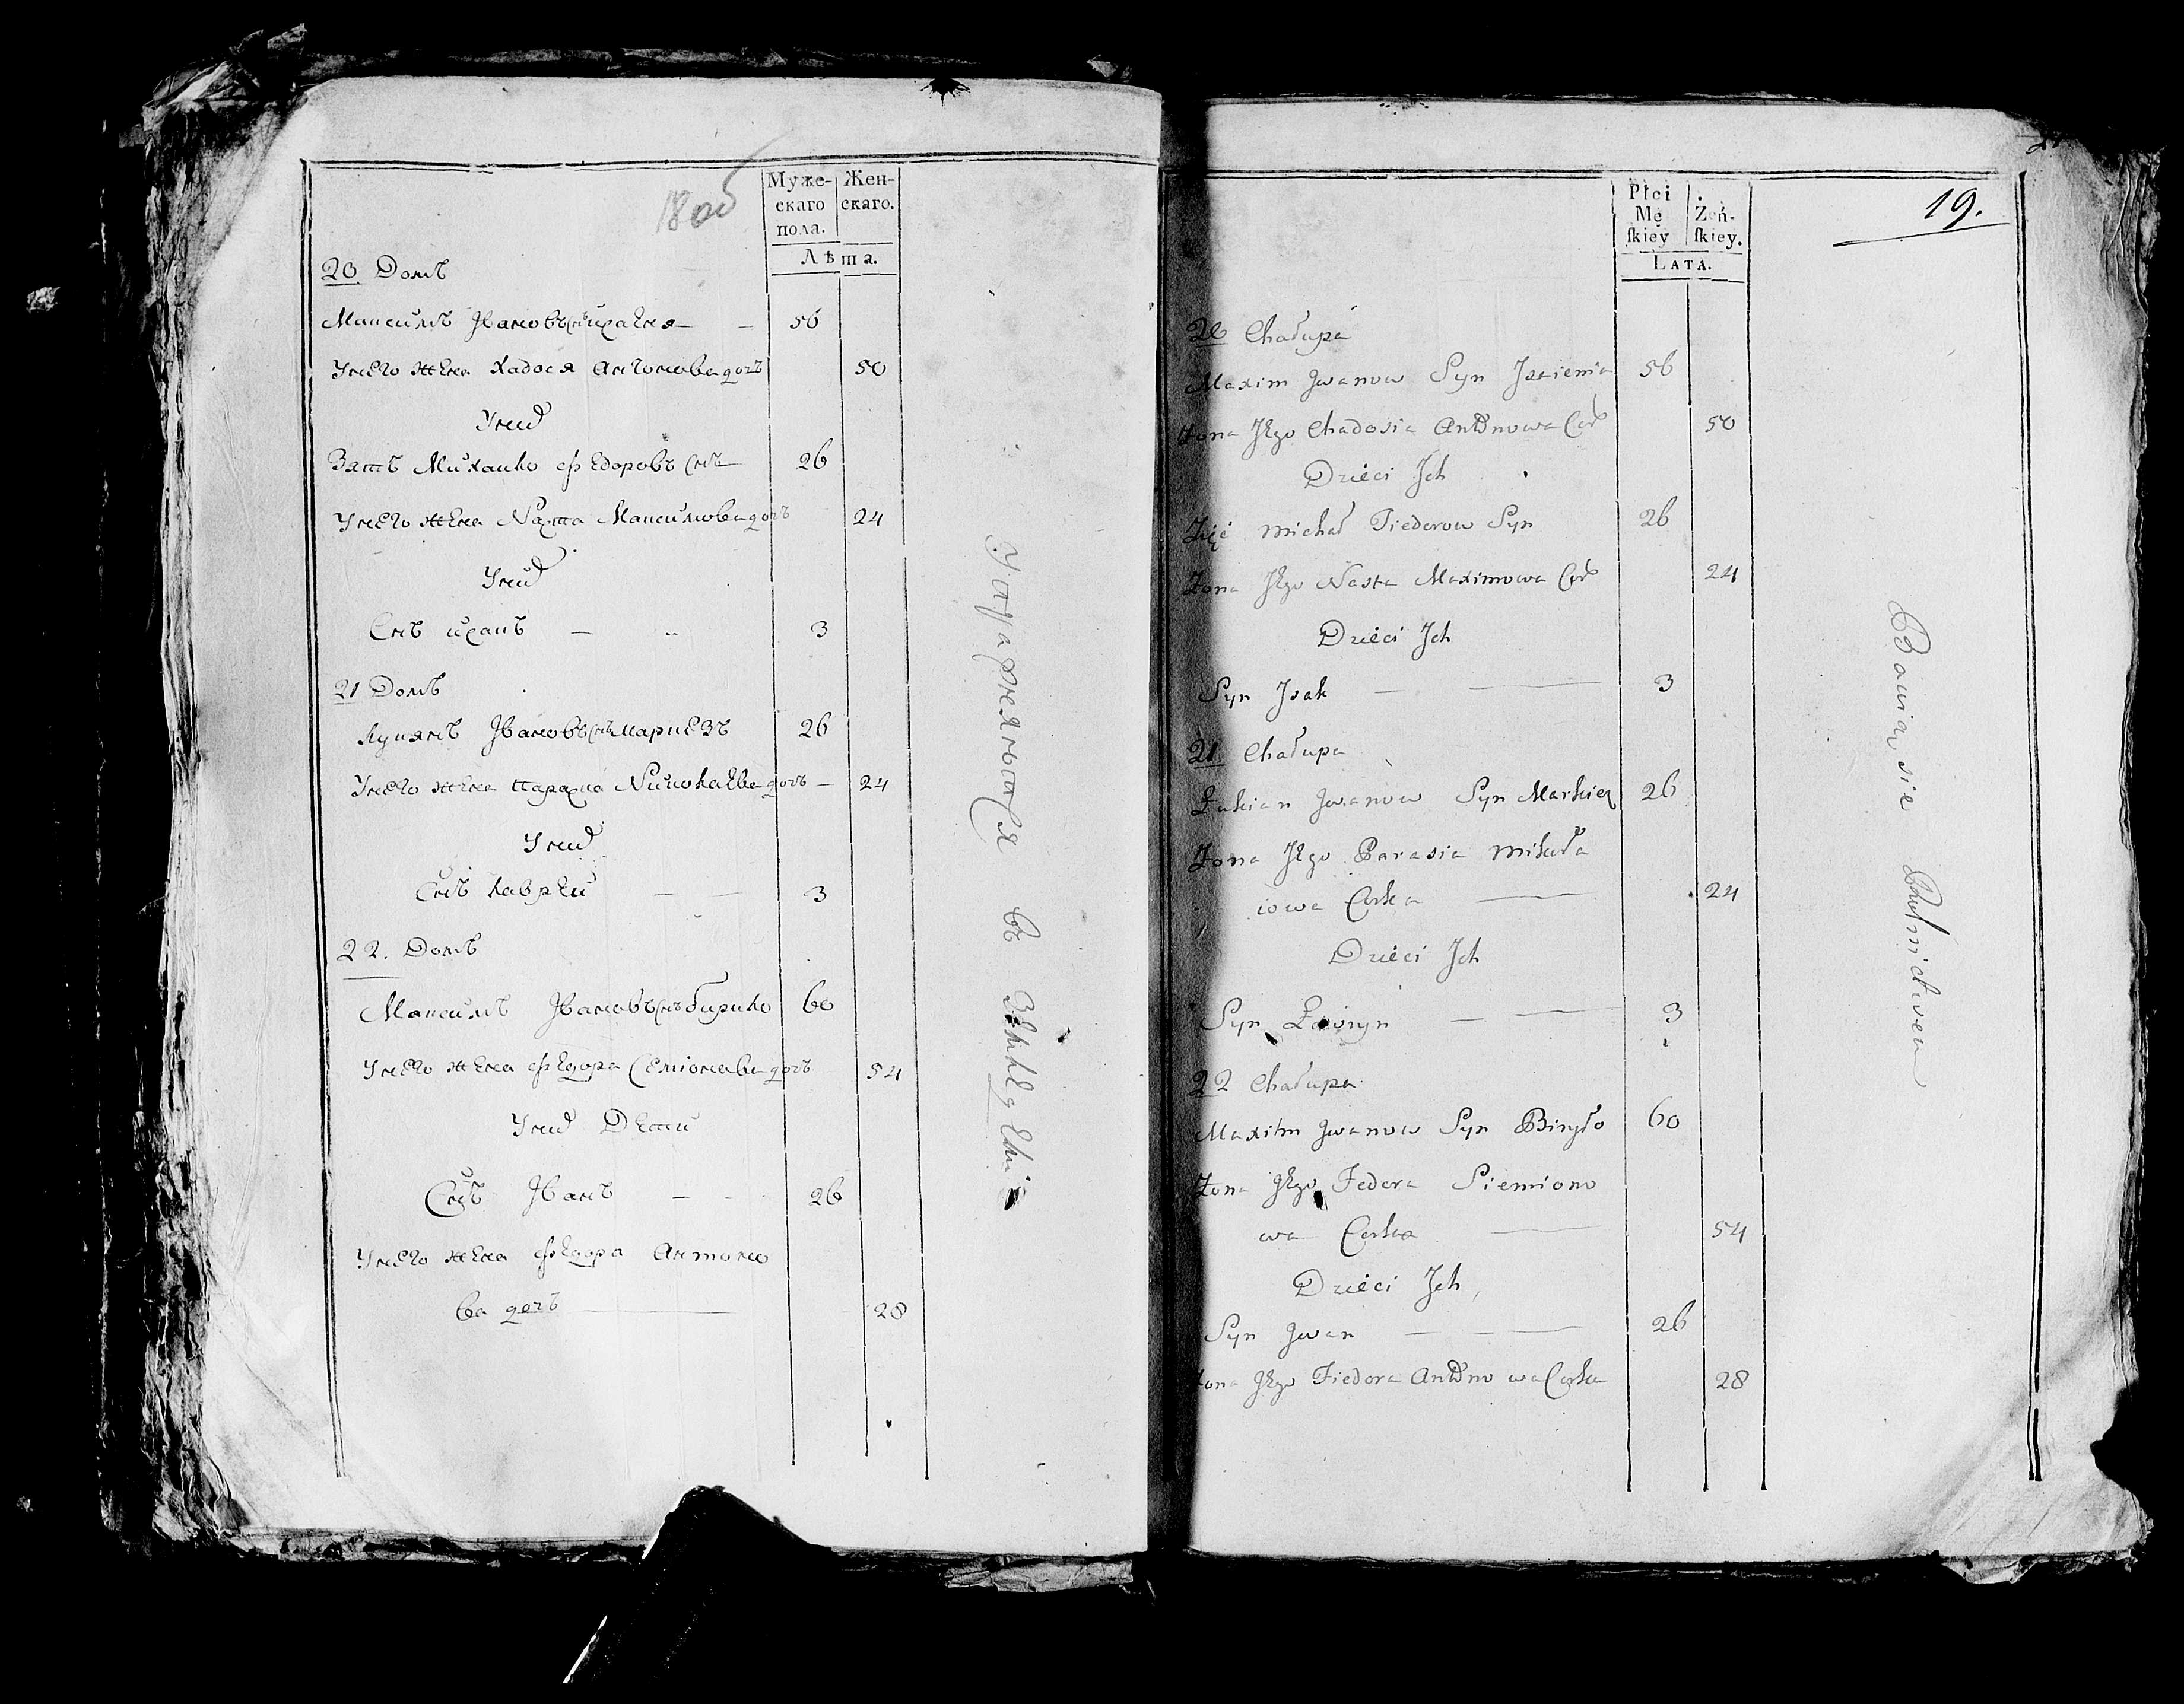 18об
Муже- Жен-
скаго скаго.
пола.
Лѣта.
20 Домъ
Максимъ Івановъ снъ исаеня — — 56
Унего жена Хадося Антонова дочь 50
Униⷯ
Зять Михайло Федоровъ снъ — 26
Унего жена Наста Максимова дочь 24
Униⷯ
Снъ исакъ — 3
21 Домъ
Лукянъ Івановъ снъ маркевъ 26
Унего жена парася Николаева дочь — 24
Униⷯ
Снъ лаврей — — 3
22. Домъ
Максимъ Івановъ снъ бирило 60
Унего жена Федора Семіонова дочь 54
Униⷯ Дети
Снъ Іванъ — — 26
Унего жена Федора Антоно
ва дочь — 28
въ
19.
Płci
Mę Żeń-
ſkiey ſkiey.
LATA.
20 Chałupa
Maxim Jwanow Syn Jsaienia 56
Żona Jego Chadosia Antonowa Cor 50
Dzieci Jch
Zięć Michał Fiederow Syn 26
Żona Jego Nasta Maximowa Cor 24
Dzieci Jch
Syn Jsak — — 3
21. Chałupa
Łukian Jwanow Syn Markiew 26
Żona Jego Parasia Mikoła
iowa Corka — 24
Dzieci Jch
Syn Ławryn — — 3
22 Chałupa
Maxim Jwanow Syn Biryło 60
Żona Jego Fedora Siemiono
wa Corka — 54
Dzieci Jch
Syn Jwan — — 26
Żona Jego Fiedora Antonowa Corka 28